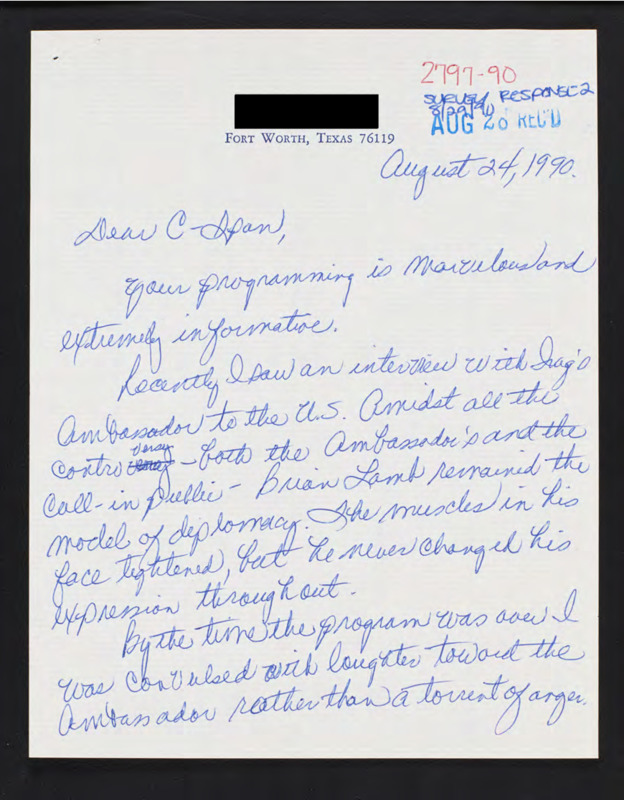 2797-90
SURVEY RESPONSE 2
8/29/90
AUG 28 REC'D
FORT WORTH, TEXAS 76119
August 24, 1990.
Dear C-Span,
Your programming is marvelous and
extremely informative.
Recently I saw an interview with Iraq's
Ambassador to the U.S. Amidst all the
controversy - both the Ambassador's and the
Call-in public - Brian Lamb remained the
model of diplomacy. The muscles in his
face tightened, but he never changed his
expression throughout.
By the time the program was over I
was convulsed with laughter toward the
Ambassador rather than a torrent of anger.